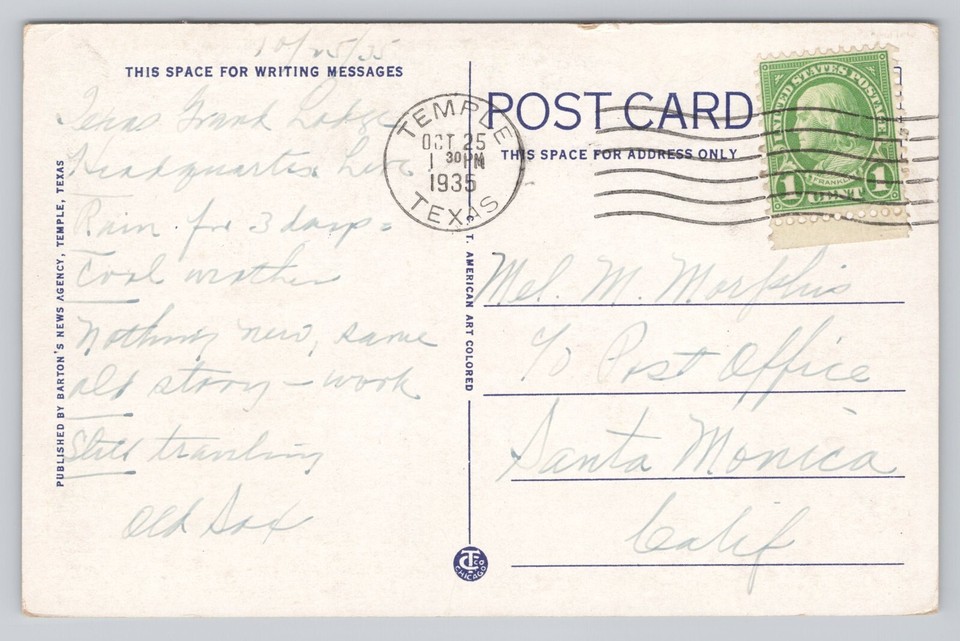 10/25/35
THIS SPACE FOR WRITING MESSAGES
Texas Grand Lodge
Headquarters here
Rain for 3 days =
Cool weather
Nothing new, same
old story - work
Still traveling
Old Sox
PUBLISHED BY BARTON'S NEWS AGENCY, TEMPLE, TEXAS
C. T. AMERICAN ART COLORED
CTCO
CHICAGO
TEMPLE
OCT 25
1 30 PM
1935
TEXAS
POST CARD
THIS SPACE FOR ADDRESS ONLY
UNITED STATES POSTAGE
FRANKLIN
1 CENT 1
Mel. M. Morphis
c/o Post Office
Santa Monica
Calif